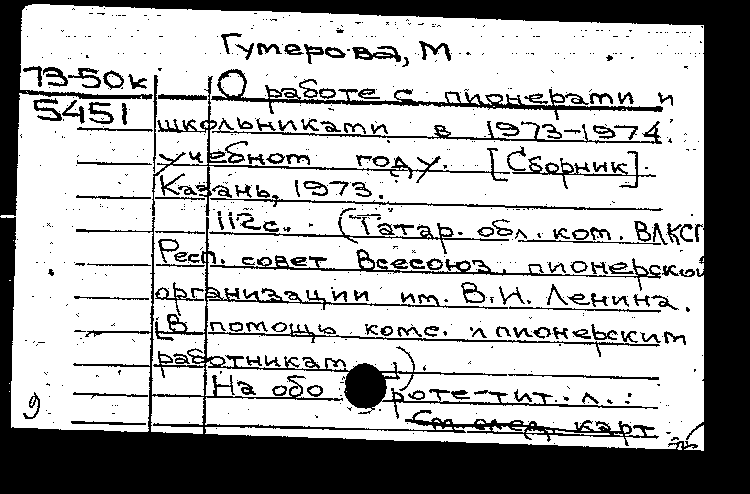 Гумерова, М
73-50к
5451
О работе с пионерами и
школьниками в 1973-1974
учебном году. [Сборник].
Казань, 1973.
112с. (Татар. обл. ком. ВЛКСМ
Респ. совет Всесоюз. пионерской
организации им. В.И. Ленина.
[В помощь комс. и пионерским
работникам]).
На обороте тит. л. :
См. след. карт.
9